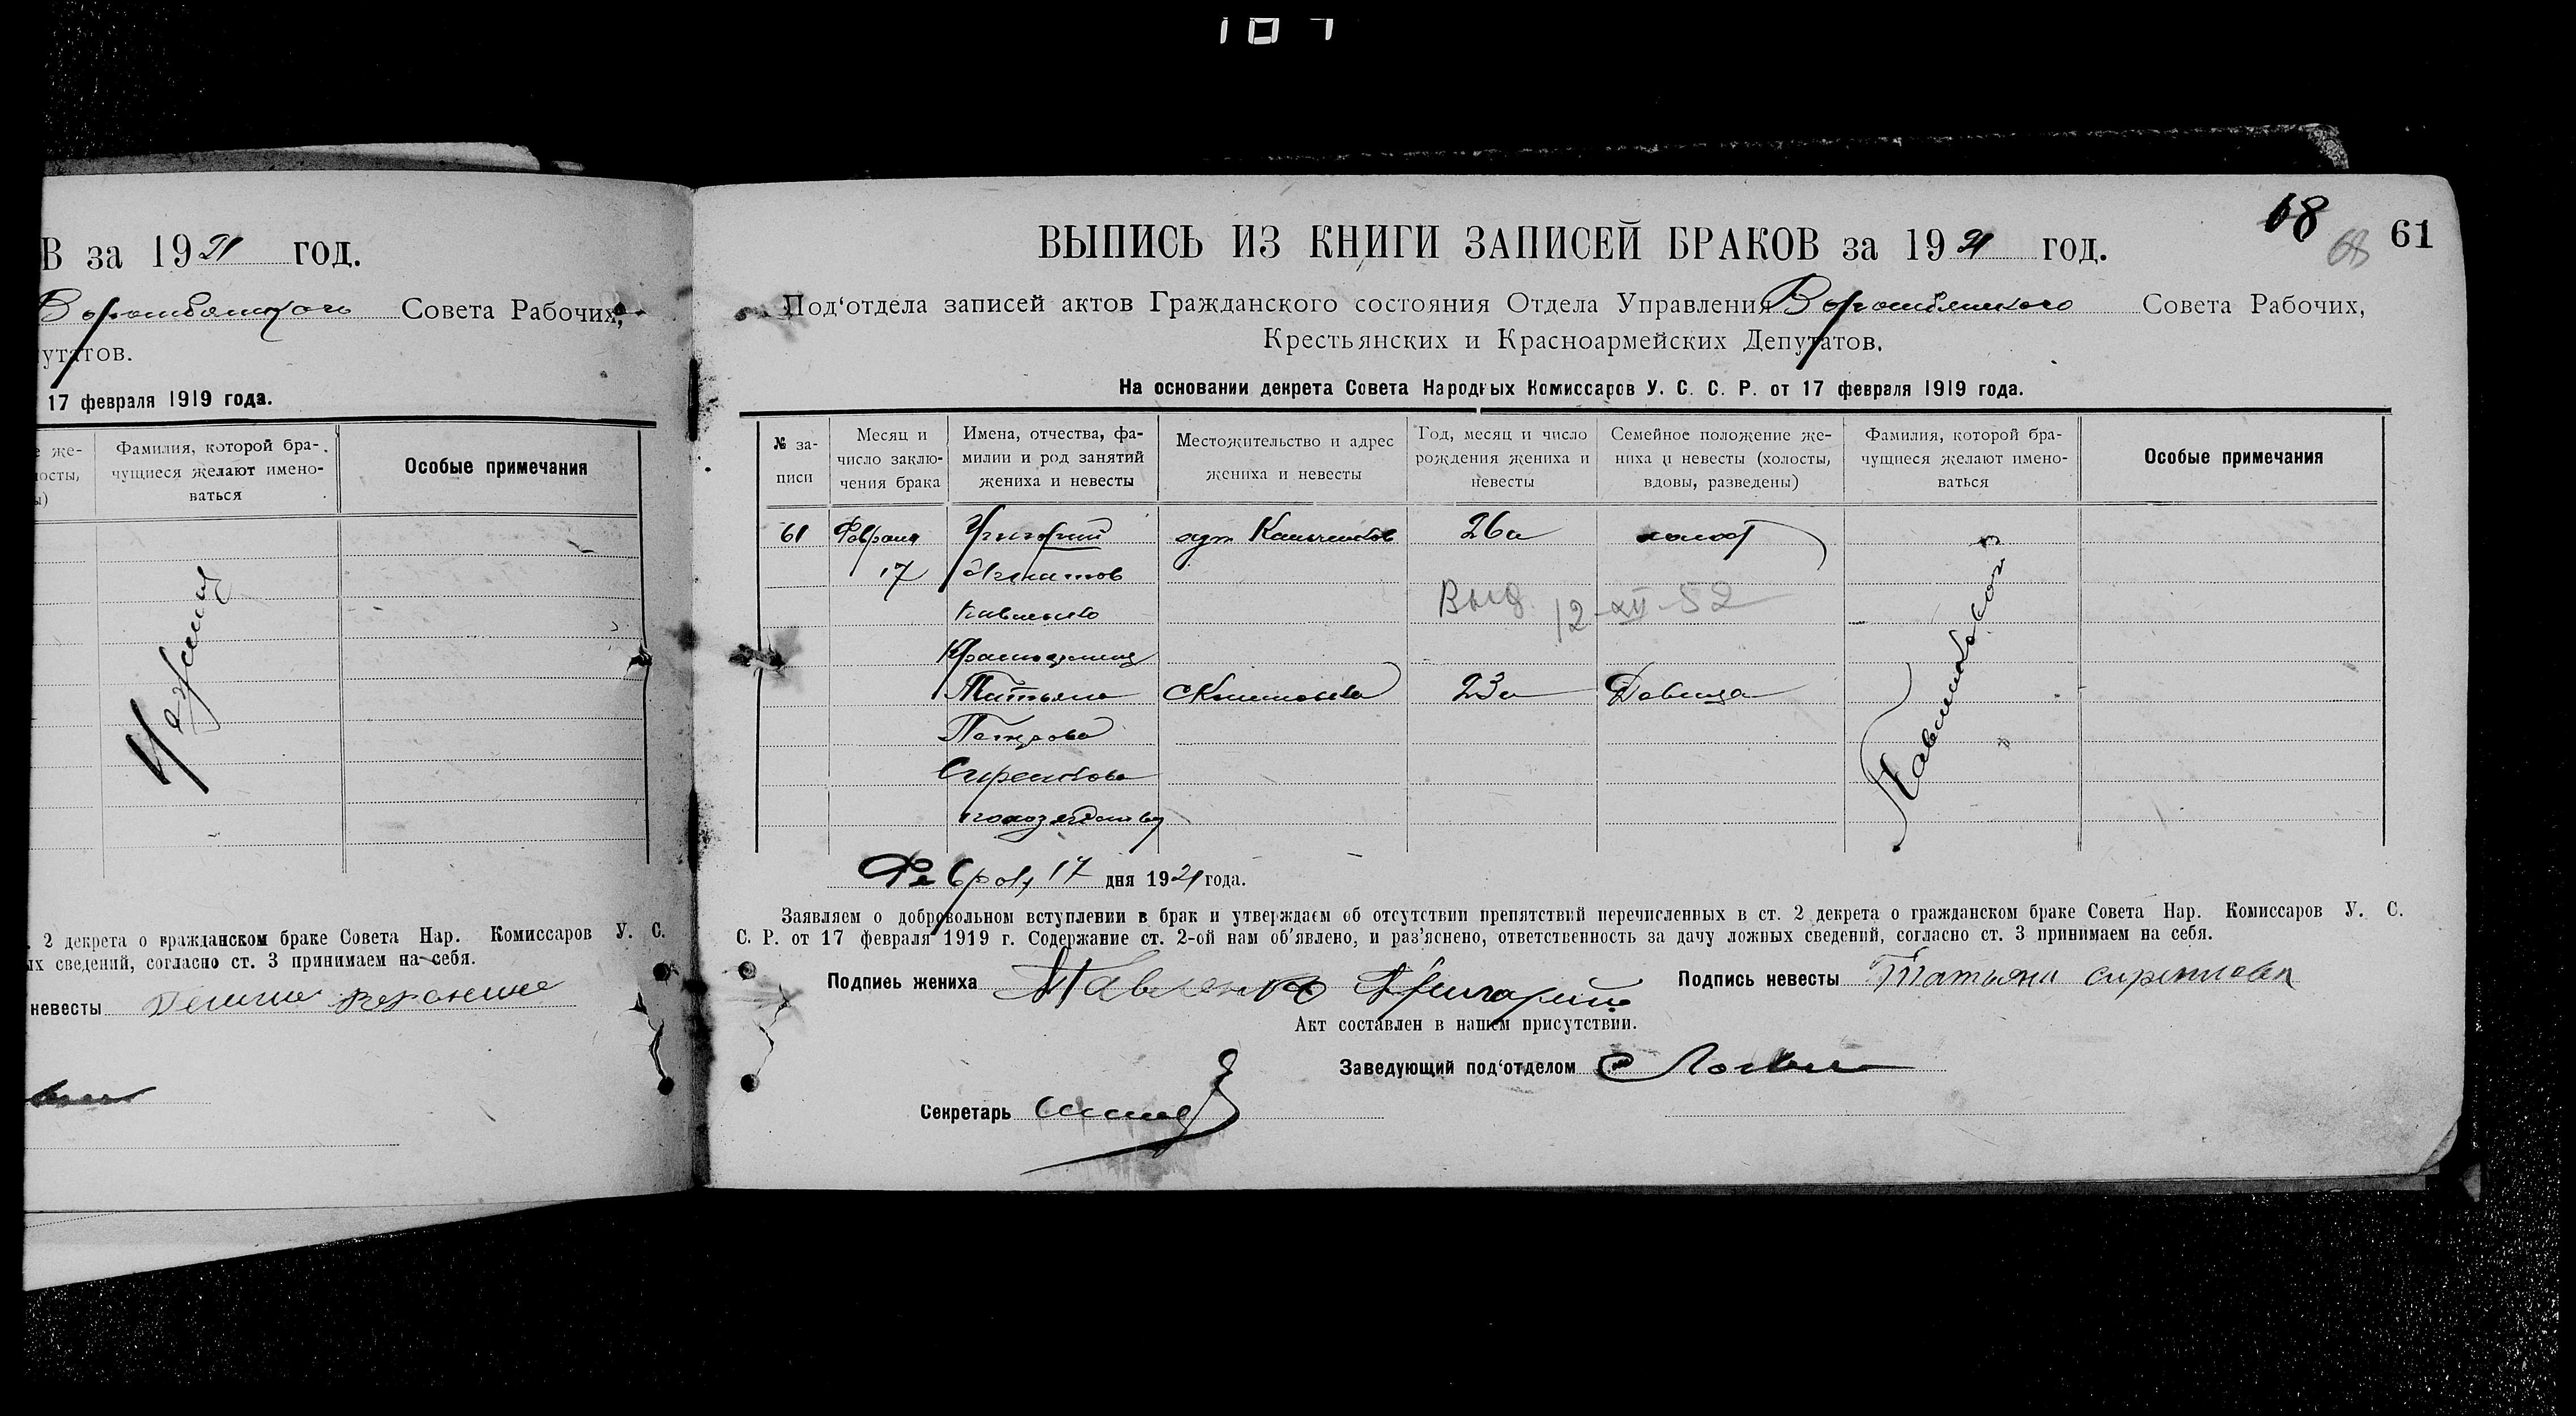 В за 1921 год.
Совета Рабочих,
утатов.
17 февраля 1919 года.
е же-
лосты,
ы)
Фамилия, которой бра-
чущиеся желают имено-
ваться
Особые примечания
. 2 декрета о гражданском браке Совета Нар. Комиссаров У. С.
ых сведений, согласно ст. 3 принимаем на себя.
невесты
68
68
61
ВЫПИСЬ ИЗ КНИГИ ЗАПИСЕЙ БРАКОВ за 1921 год.
Под‘отдела записей актов Гражданского состояния Отдела Управления Совета Рабочих,
Крестьянских и Красноармейских Депутатов.
На основании декрета Совета Народных Комиссаров У. С. С. Р. от 17 февраля 1919 года.
№ за-
писи
Месяц и
число заклю-
чения брака
Имена, отчества, фа-
милии и род занятий
жениха и невесты
Местожительство и адрес
жениха и невесты
Год, месяц и число
рождения жениха и
невесты
Семейное положение же-
ниха и невесты (холосты,
вдовы, разведены)
Фамилия, которой бра-
чущиеся желают имено-
ваться
Особые примечания
61 Февраля Григорий 26 л холост
17 Игнатов
Павленко
Выд. 12-XII-52
Татьяна 23 л Девица
Петрова
Сиренкова
Февраля 17 дня 1921 года.
Заявляем о добровольном вступлении в брак и утверждаем об отсутствии препятствий перечисленных в ст. 2 декрета о гражданском браке Совета Нар. Комиссаров У. С.
С. Р. от 17 февраля 1919 г. Содержание ст. 2-ой нам об'явлено, и раз'яснено, ответственность за дачу ложных сведений, согласно ст. 3 принимаем на себя.
Подпись жениха Павленко Григорий Подпись невесты Татьяна
Акт составлен в нашем присутствии.
Заведующий под‘отделом
Секретарь